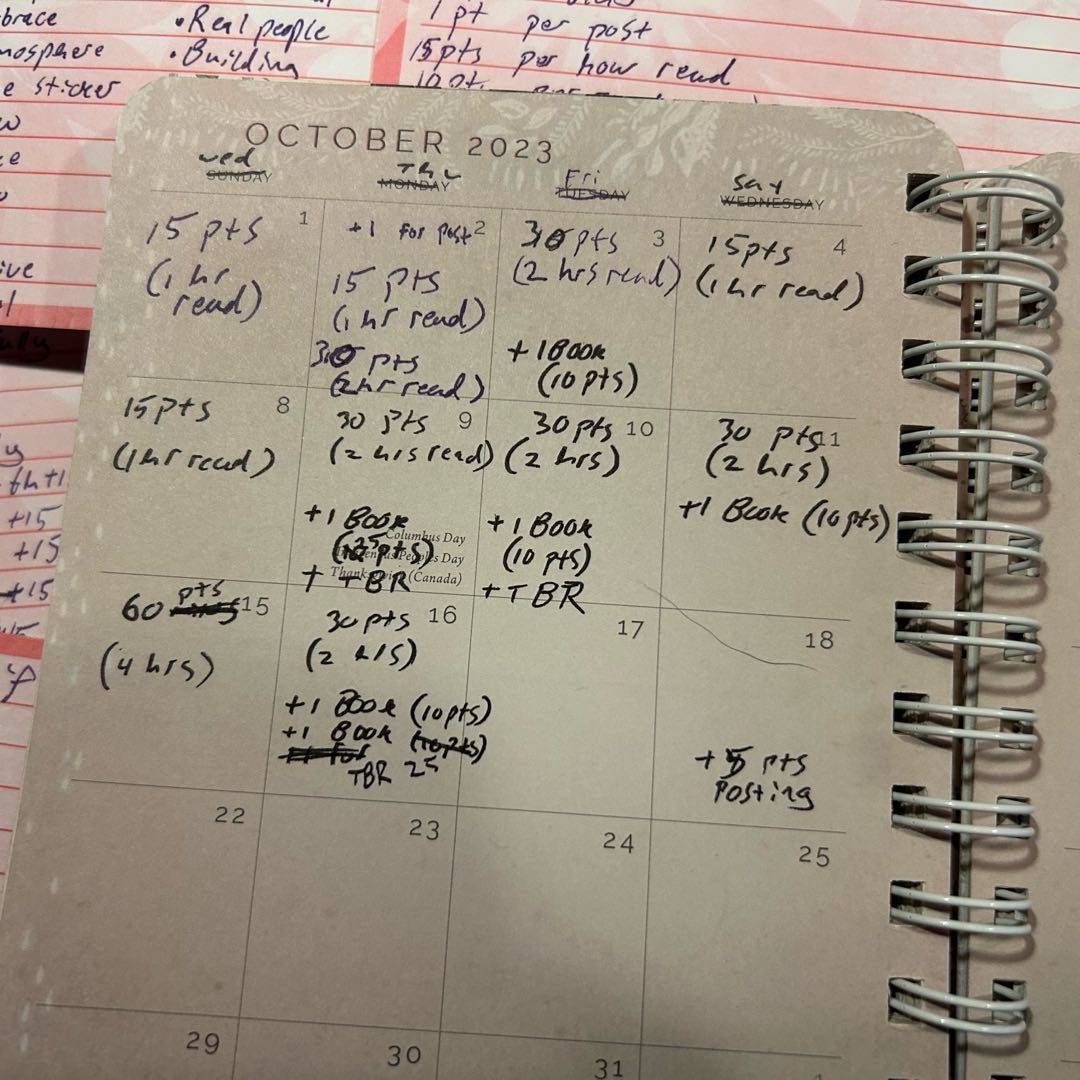 brace
• Real people
mosphere
• Building
e sticker
1 pt per post
15pts per hour read
10 pts
OCTOBER 2023
wed
SUNDAY
Thu
MONDAY
Fri
TUESDAY
Sat
WEDNESDAY
1
15 pts
(1 hr
read)
2
+1 for post
15 pts
(1 hr read)
30 pts
(2hr read)
3
30 pts
(2 hrs read)
+1 Book
(10 pts)
4
15pts
(1 hr read)
8
15pts
(1hr read)
9
30 pts
(2 hrs read)
+1 Book
(25 pts)
Columbus Day
Indigenous Peoples' Day
Thanksgiving (Canada)
+ TBR
10
30 pts
(2 hrs)
+1 Book
(10 pts)
+TBR
11
30 pts
(2 hrs)
+1 Book (10pts)
15
60 pts
(4 hrs)
16
30pts
(2 hrs)
+1 Book (10pts)
+1 Book (10pts)
TBR 25
17
18
+5 pts
Posting
22
23
24
25
29
30
31
+15
+15
+15